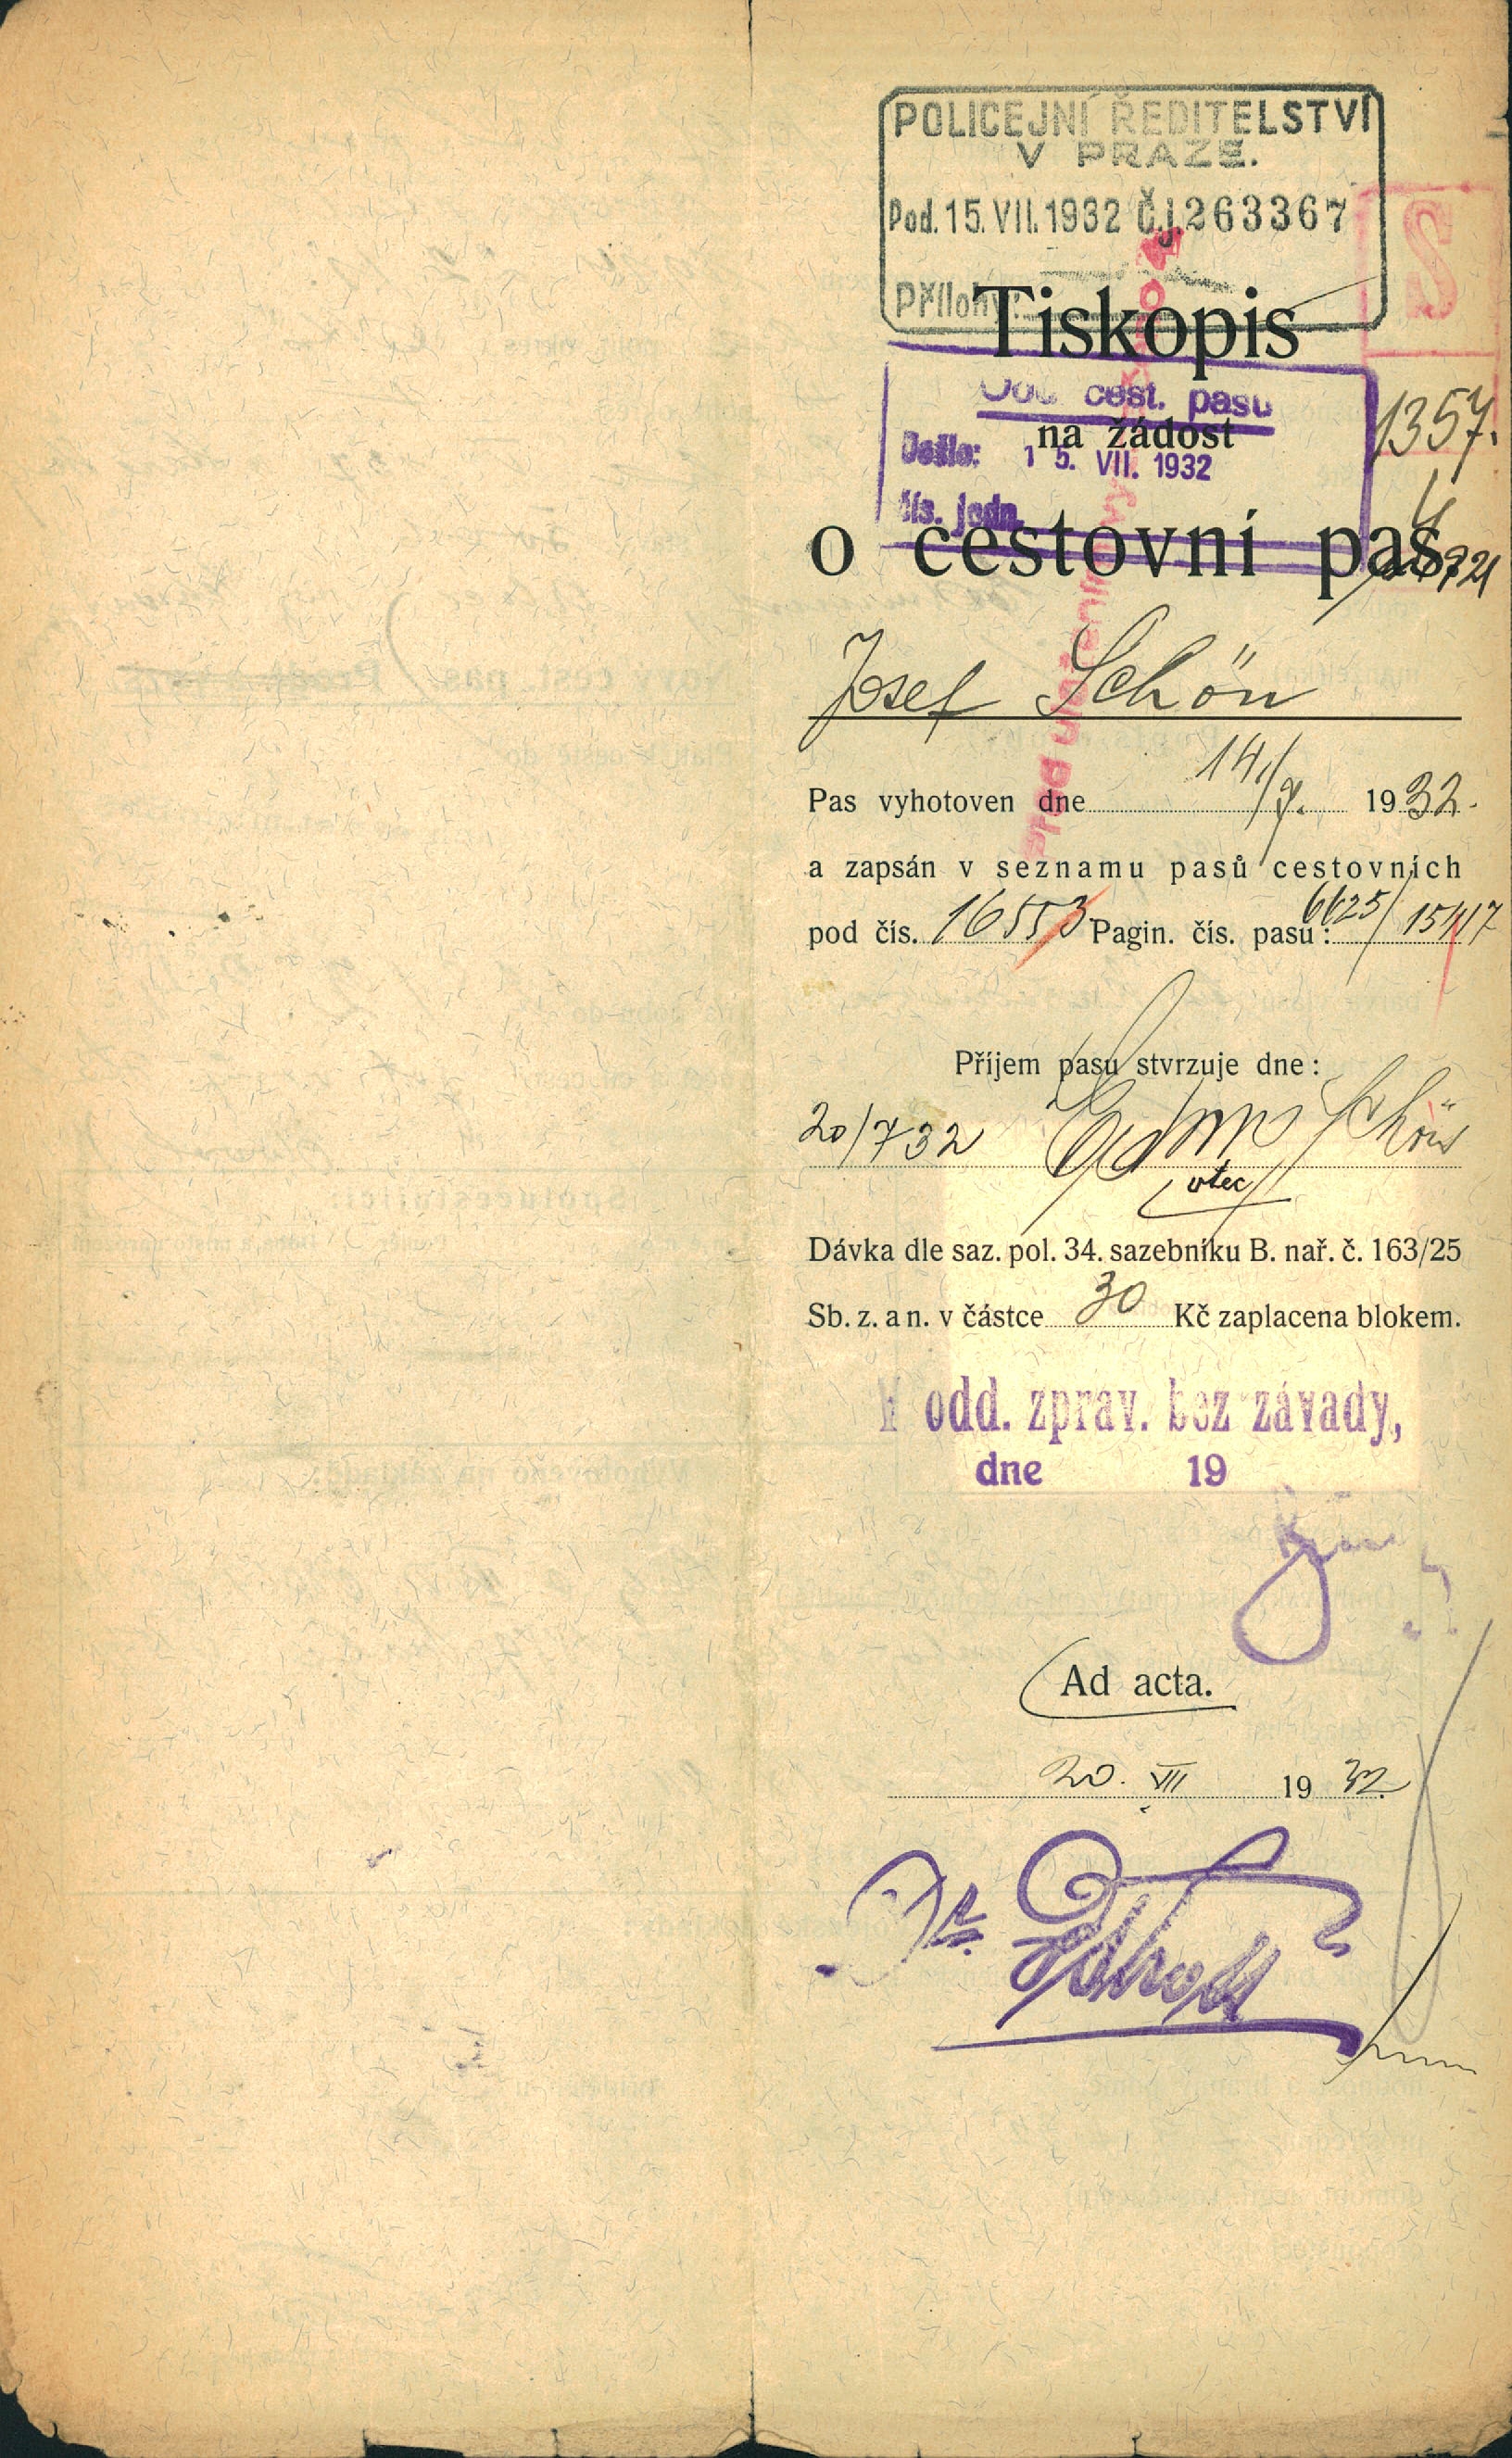 POLICEJNÍ ŘEDITELSTVÍ
V PRAZE.
Pod. 15. VII. 1932 Č.j. 263367
Přílohy:
S
Tiskopis
cest. pasů
na žádost
Došlo: 15. VII. 1932
čís. jedn.
1357.
o cestovní pas.
Josef Schön
Pas vyhotoven dne 14/7. 1932.
a zapsán v seznamu pasů cestovních
pod čís. 16553 Pagin. čís. pasu: 6625/15417
Příjem pasu stvrzuje dne:
20/7 32 Schön
otec
Dávka dle saz. pol. 34. sazebníku B. nař. č. 163/25
Sb. z. a n. v částce 30 Kč zaplacena blokem.
V odd. zpráv. bez závady,
dne 19
Ad acta.
20. VII 1932.
Dr.